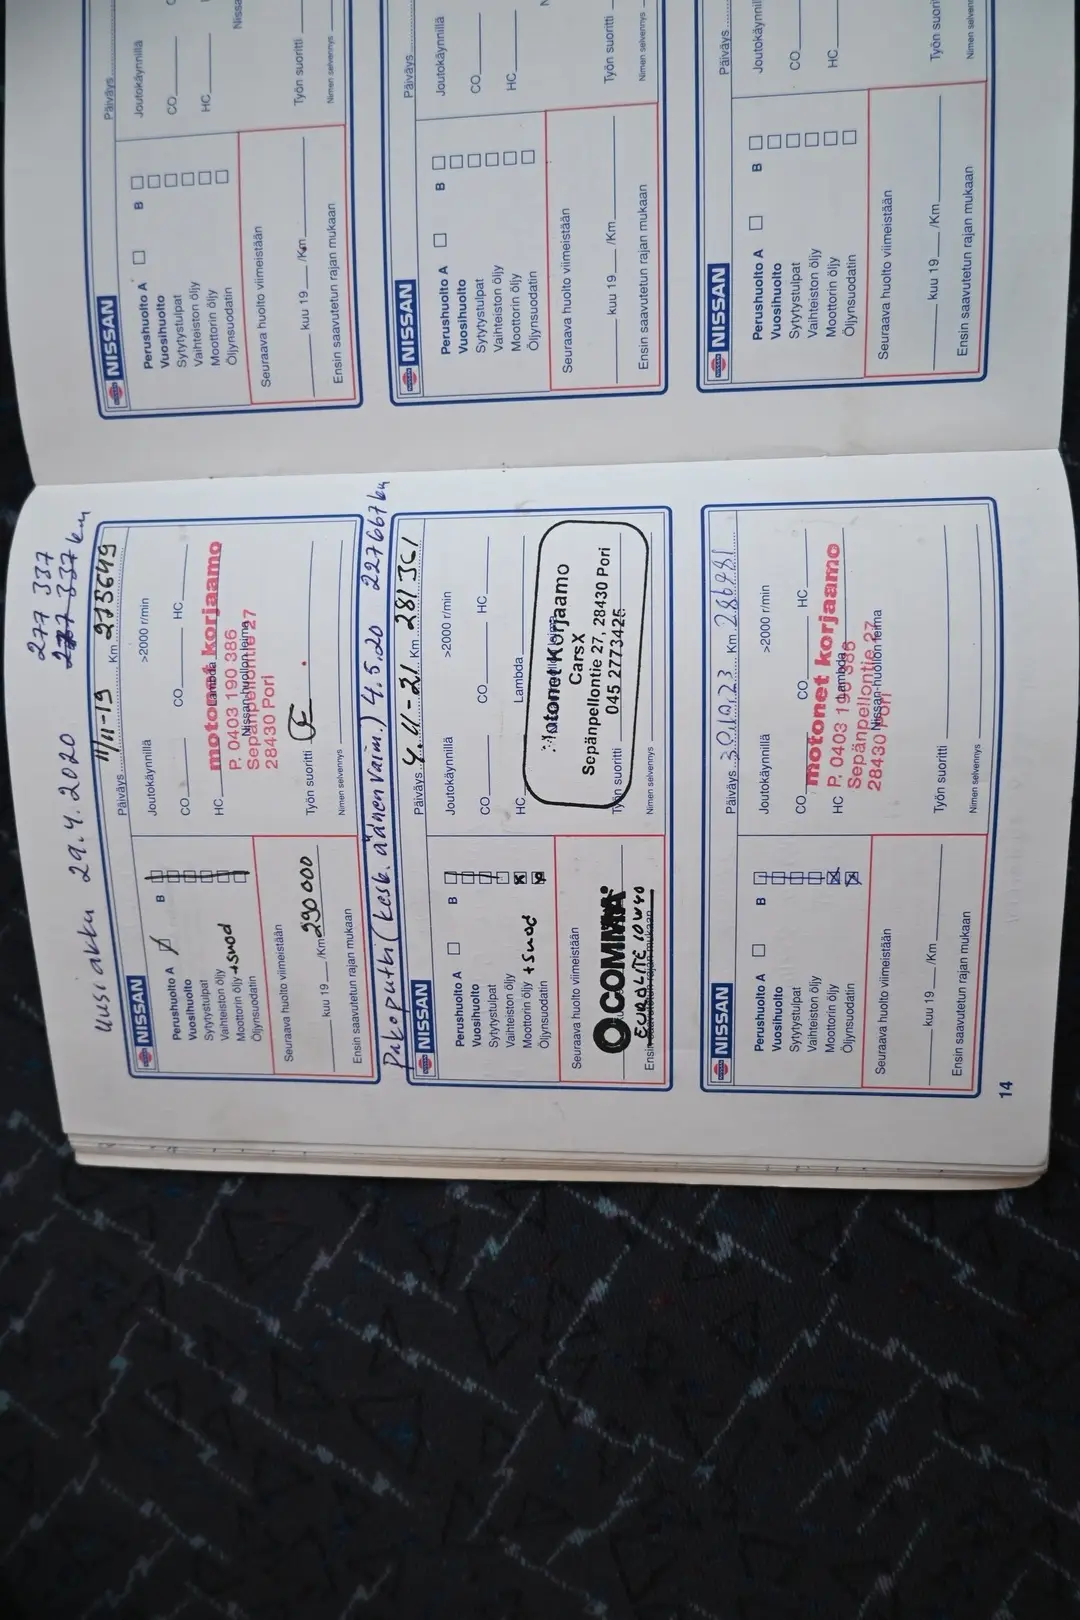 Uusi akku 29.4.2020 277 337
277 337 km
NISSAN
Päiväys 11/11-19 Km 273649
Perushuolto A
B
Vuosihuolto
Sytytystulpat
Vaihteiston öljy
Moottorin öljy + suod
Öljynsuodatin
Joutokäynnillä >2000 r/min
CO CO HC
HC Lambda
motonet korjaamo
P. 0403 190 386
Nissan-huollon leima
Sepänpellontie 27
28430 Pori
Seuraava huolto viimeistään
kuu 19 /Km 290 000
Ensin saavutetun rajan mukaan
Työn suoritti
Nimen selvennys
Pakoputki (kesk. äänenvaim.) 4.5.20 227667 km
NISSAN
Päiväys 4.11-21 Km 281361
Perushuolto A
B
Vuosihuolto
Sytytystulpat
Vaihteiston öljy
Moottorin öljy + suod
Öljynsuodatin
Joutokäynnillä >2000 r/min
CO CO HC
HC Lambda
Motonet Korjaamo
CarsX
Sepänpellontie 27, 28430 Pori
045 2773425
Seuraava huolto viimeistään
COMMA
EUROLITE 10W40
Ensin saavutetun rajan mukaan
Työn suoritti
Nimen selvennys
NISSAN
Päiväys 30.10.23 Km
Perushuolto A
B
Vuosihuolto
Sytytystulpat
Vaihteiston öljy
Moottorin öljy
Öljynsuodatin
Joutokäynnillä >2000 r/min
CO CO HC
HC Lambda
motonet korjaamo
P. 0403 190 386
Sepänpellontie 27
Nissan-huollon leima
28430 Pori
Seuraava huolto viimeistään
kuu 19 /Km
Ensin saavutetun rajan mukaan
Työn suoritti
Nimen selvennys
14
NISSAN
Päiväys
Perushuolto A
B
Vuosihuolto
Sytytystulpat
Vaihteiston öljy
Moottorin öljy
Öljynsuodatin
Joutokäynnillä
CO
HC
Nissa
Seuraava huolto viimeistään
kuu 19 /Km
Ensin saavutetun rajan mukaan
Työn suoritti
Nimen selvennys
NISSAN
Päiväys
Perushuolto A
B
Vuosihuolto
Sytytystulpat
Vaihteiston öljy
Moottorin öljy
Öljynsuodatin
Joutokäynnillä
CO
HC
Seuraava huolto viimeistään
kuu 19 /Km
Ensin saavutetun rajan mukaan
Työn suoritti
Nimen selvennys
NISSAN
Päiväys
Perushuolto A
B
Vuosihuolto
Sytytystulpat
Vaihteiston öljy
Moottorin öljy
Öljynsuodatin
Joutokäynnil
CO
HC
Seuraava huolto viimeistään
kuu 19 /Km
Ensin saavutetun rajan mukaan
Työn suori
Nimen selven